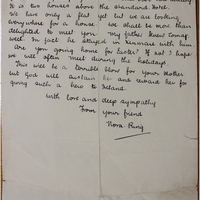 is two houses above the Standard Hotel.
We have only a flat yet but we are looking
everywhere for a house. We shall be more than
delighted to meet you. My father knew Tomas
well. In fact he stayed in Kenmare with him
Are you going home for Easter? If not I hope
we will often meet during the holidays
This will be a terrible blow for your Mother
but God will sustain her and reward her for
giving such a hero to Ireland.
With love and deep sympathy
From your friend
Nora